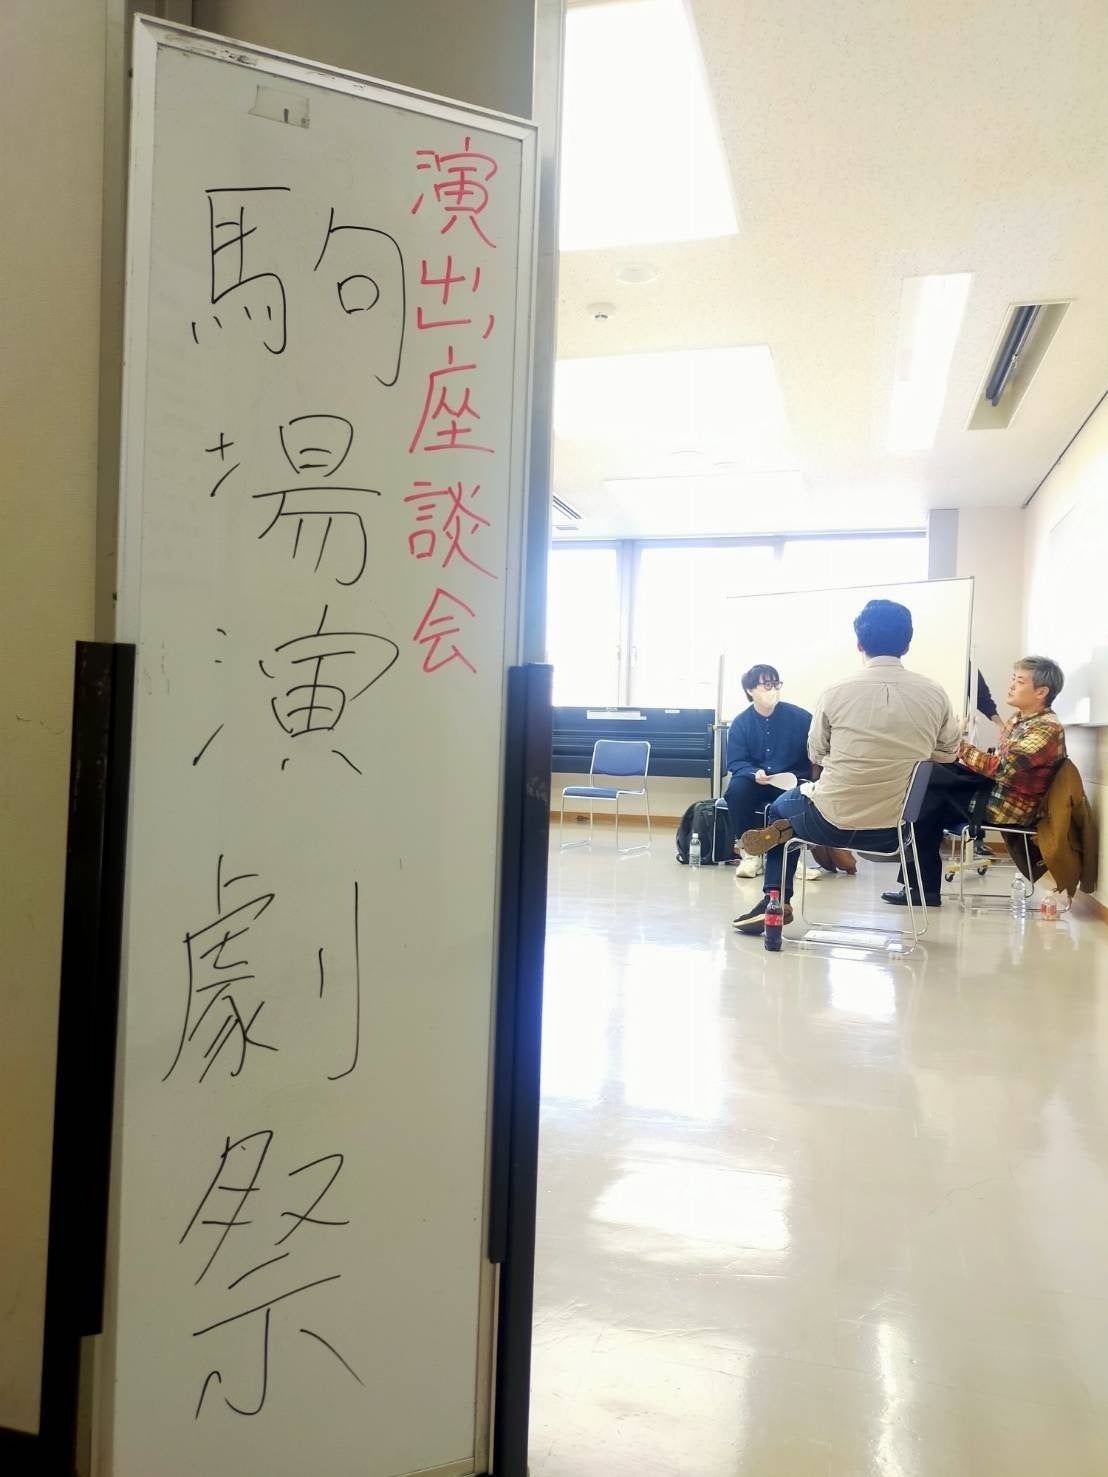 演出座談会
駒場演劇祭